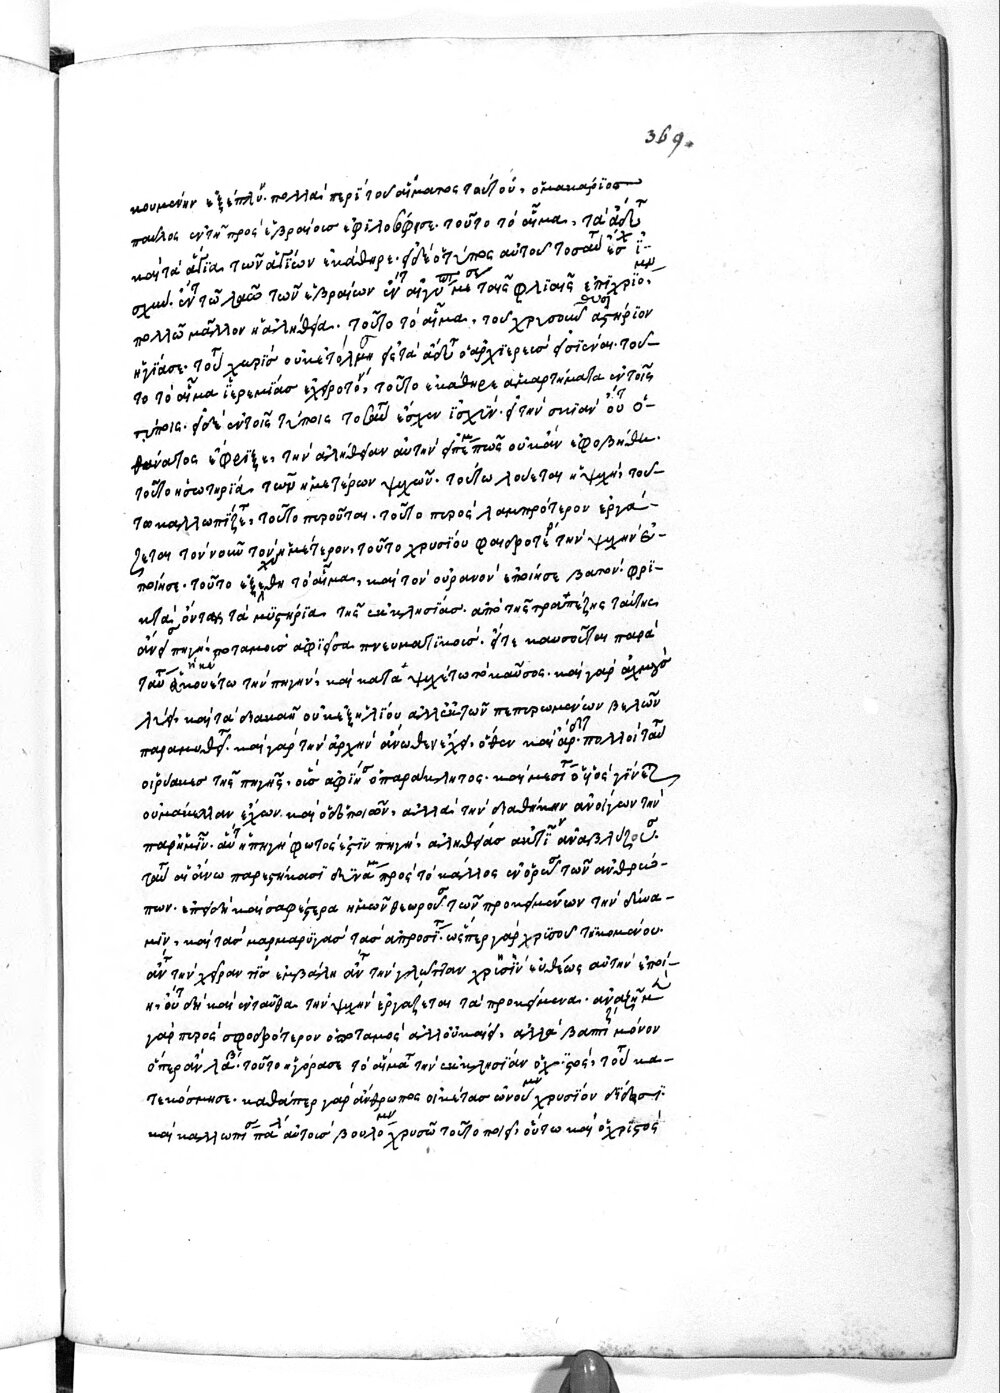 369.
κουμένην ἐξέπλυ. πολλὰ περὶ τοῦ αἵματος τούτου, ὁ μακάριος
παῦλος ἐν τῇ πρὸς ἑβραίους ἐφιλοσόφησε. τοῦτο τὸ αἷμα, τὰ ἄδυτ
καὶ τὰ ἅγια τῶν ἁγίων ἐκάθηρε. εἰ δὲ ὁ τύπος αὐτοῦ τοσαύτ ἔσχ ἰ-
σχὺν. ἔν τε τῷ λαῷ τῶν ἑβραίων ἔν τε αἰγύπτ μέσ ταῖς φλιαῖς ἐπιχριό,
πολλῷ μᾶλλον ἡ ἀλήθεια. τοῦτο τὸ αἷμα, τὸ χρυσοῦν θυσιαστήριον
ἡγίασε. τούτ χωρὶς οὐκ ἐτόλμη εἰς τὰ ἄδυτ ὁ ἀρχιερεὺς εἰσιέναι. τοῦ-
το τὸ αἷμα ἱερεῖας ἐχειροτό, τοῦτο ἐκάθηρε ἁμαρτήματα ἐν τοῖς
τύποις. εἰ δὲ ἐν τοῖς τύποις τοσαύτ ἔσχεν ἰσχὺν. εἰ τὴν σκιὰν οὕτ ὁ
θάνατος ἔφριξε, τὴν ἀλήθειαν αὐτὴν εἰπέ μοι πῶς οὐκ ἂν ἐφοβήθη.
τοῦτο ἡ σωτηρία τῶν ἡμετέρων ψυχῶν. τούτω λούεται ἡ ψυχὴ, τού-
τω καλλωπίζετ, τούτο πυροῦται. τοῦτο πυρὸς λαμπρότερον ἐργά-
ζεται τὸν νοῦν τὸν ἡμέτερον, τοῦτο χρυσίου φαιδροτέρ τὴν ψυχὴν ἐ-
ποίησε. τοῦτο ἐξεχύθη τὸ αἷμα, καὶ τὸν οὐρανὸν ἐποίησε βατόν. φρι-
κτὰ ὄντως τὰ μυστήρια τῆς ἐκκλησίας. ἀπὸ τῆς τραπέζης ταύτης
ἄνεισ πηγὴ ποταμοὺς ἀφιεῖσα πνευματικούς. εἴ τι καυσοῦται παρὰ
πηγὴν, καὶ καταψυχέτω τὸ καῦσος. καὶ γὰρ
παραμυθεῖτ. καὶ γὰρ τὴν ἀρχὴν ἄνωθεν ἔχει, ὅθεν καὶ ἄρδετ. πολλοὶ ταύτ
οἱ ῥύακες τῆς πηγῆς, οὓς ἀφίησ ὁ παράκλητος. καὶ μεσίτ ὁ υἱὸς γίνετ
οὐ μάκελλαν ἔχων καὶ ὁδοποιῶν, ἀλλὰ τὴν διαθήκην ἀνοίγων τὴν
παρ' ἡμῖν. αὕτ ἡ πηγὴ φωτός ἐστιν πηγή, ἀληθείας ἀκτῖν ἀναβλύζουσ.
ταύτ αἱ ἄνω παρεστήκασι δυνάμ πρὸς τὸ κάλλος ἐνορῶσ τῶν ἀνθρώ-
πων. ἐπειδὴ καὶ σαφέστερα ἡμῶν θεωροῦσ τῶν προκειμένων τὴν δύνα-
μιν, καὶ τὰς μαρμαρυγὰς τὰς ἀπροσίτ. ὥσπερ γὰρ χρυσοῦ τηκομένου.
ἂν τὴν χεῖραν τις ἐμβάλη ἂν τὴν γλῶτταν χρυσῆν εὐθέως αὐτὴν ἐποί-
η. οὕτ δὴ καὶ ἐνταῦθα τὴν ψυχὴν ἐργάζεται τὰ προκείμενα.
γὰρ πυρὸς σφοδρότερον ὁ ποταμὸς ἀλλ' οὐ καίει, ἀλλὰ βαπτίζει μόνον
ὅπερ ἂν λάβ. τοῦτο ἠγόρασε τὸ αἷμα τὴν ἐκκλησίαν ὁ χριστός, τούτ κα-
τεκόσμησε. καθάπερ γὰρ ἄνθρωπος οἰκέτας ὠνούμεν χρυσίον δίδωσι.
καὶ καλλωπίσ πάλ αὐτοὺς βουλόμεν χρυσῷ τοῦτο ποιεῖ, οὕτω καὶ ὁ χριστὸς